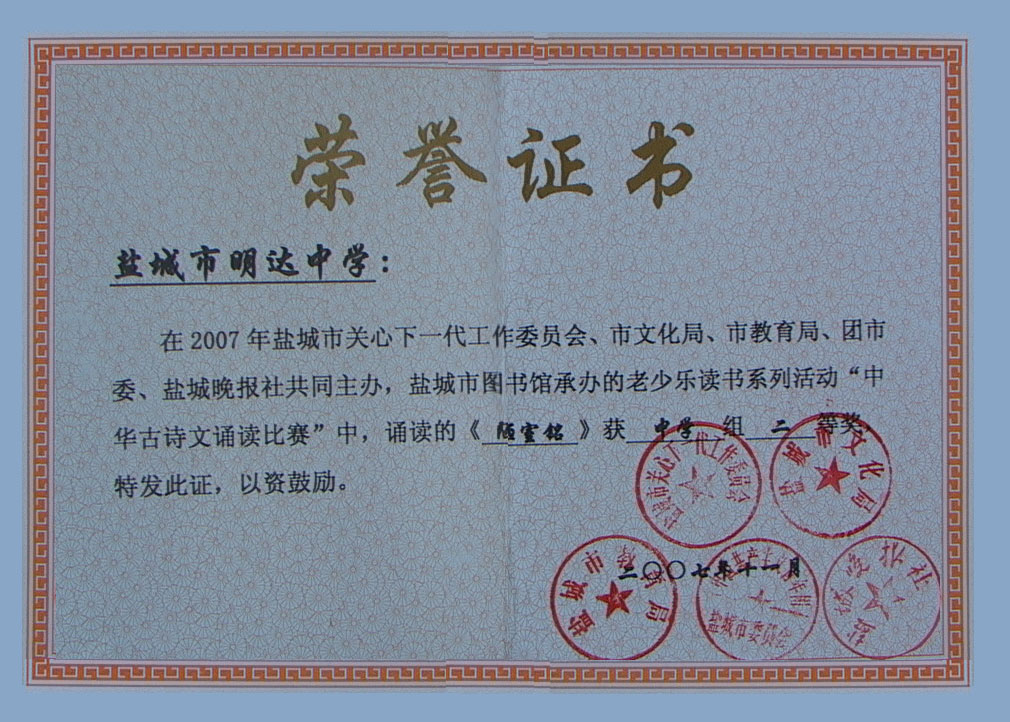 荣誉证书
盐城市明达中学：
在2007年盐城市关心下一代工作委员会、市文化局、市教育局、团市
委、盐城晚报社共同主办，盐城市图书馆承办的老少乐读书系列活动“中
华古诗文诵读比赛”中，诵读的《陋室铭》获 中学 组 二 等奖，
特发此证，以资鼓励。
盐城市关心下一代工作委员会
盐城市文化局
二〇〇七年十一月
盐城市教育局
盐城市委员会